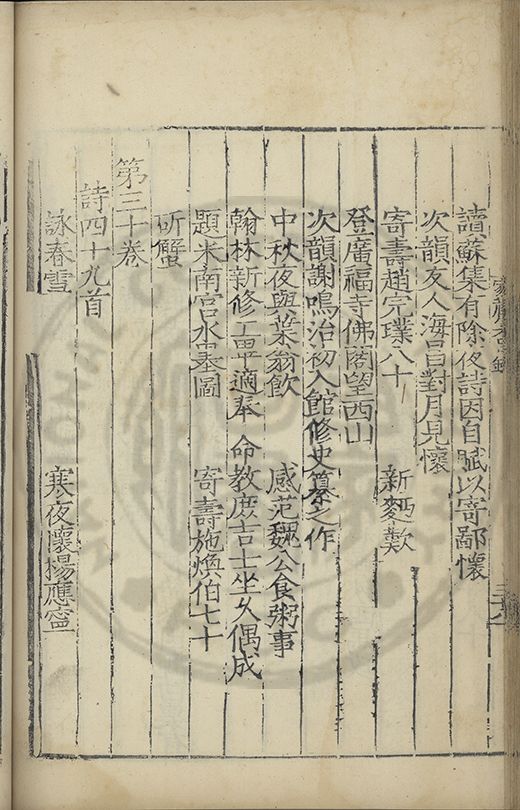 讀蘇集有除夜詩因自賦以寄鄙懷
次韻友人海昌對月見懷
寄壽趙完璞八十 新麪歎
登廣福寺佛閣望西山
次韻謝鳴治初入館修史篡之作
中秋夜與葉翁飲 感范魏公食粥事
翰林新修工畢適奉 命教庶吉士坐久偶成
題米南宮水墨圖 寄壽施煥伯七十
斫蟹
第三十卷
詩四十九首
詠春雪 寒夜懷楊應寧